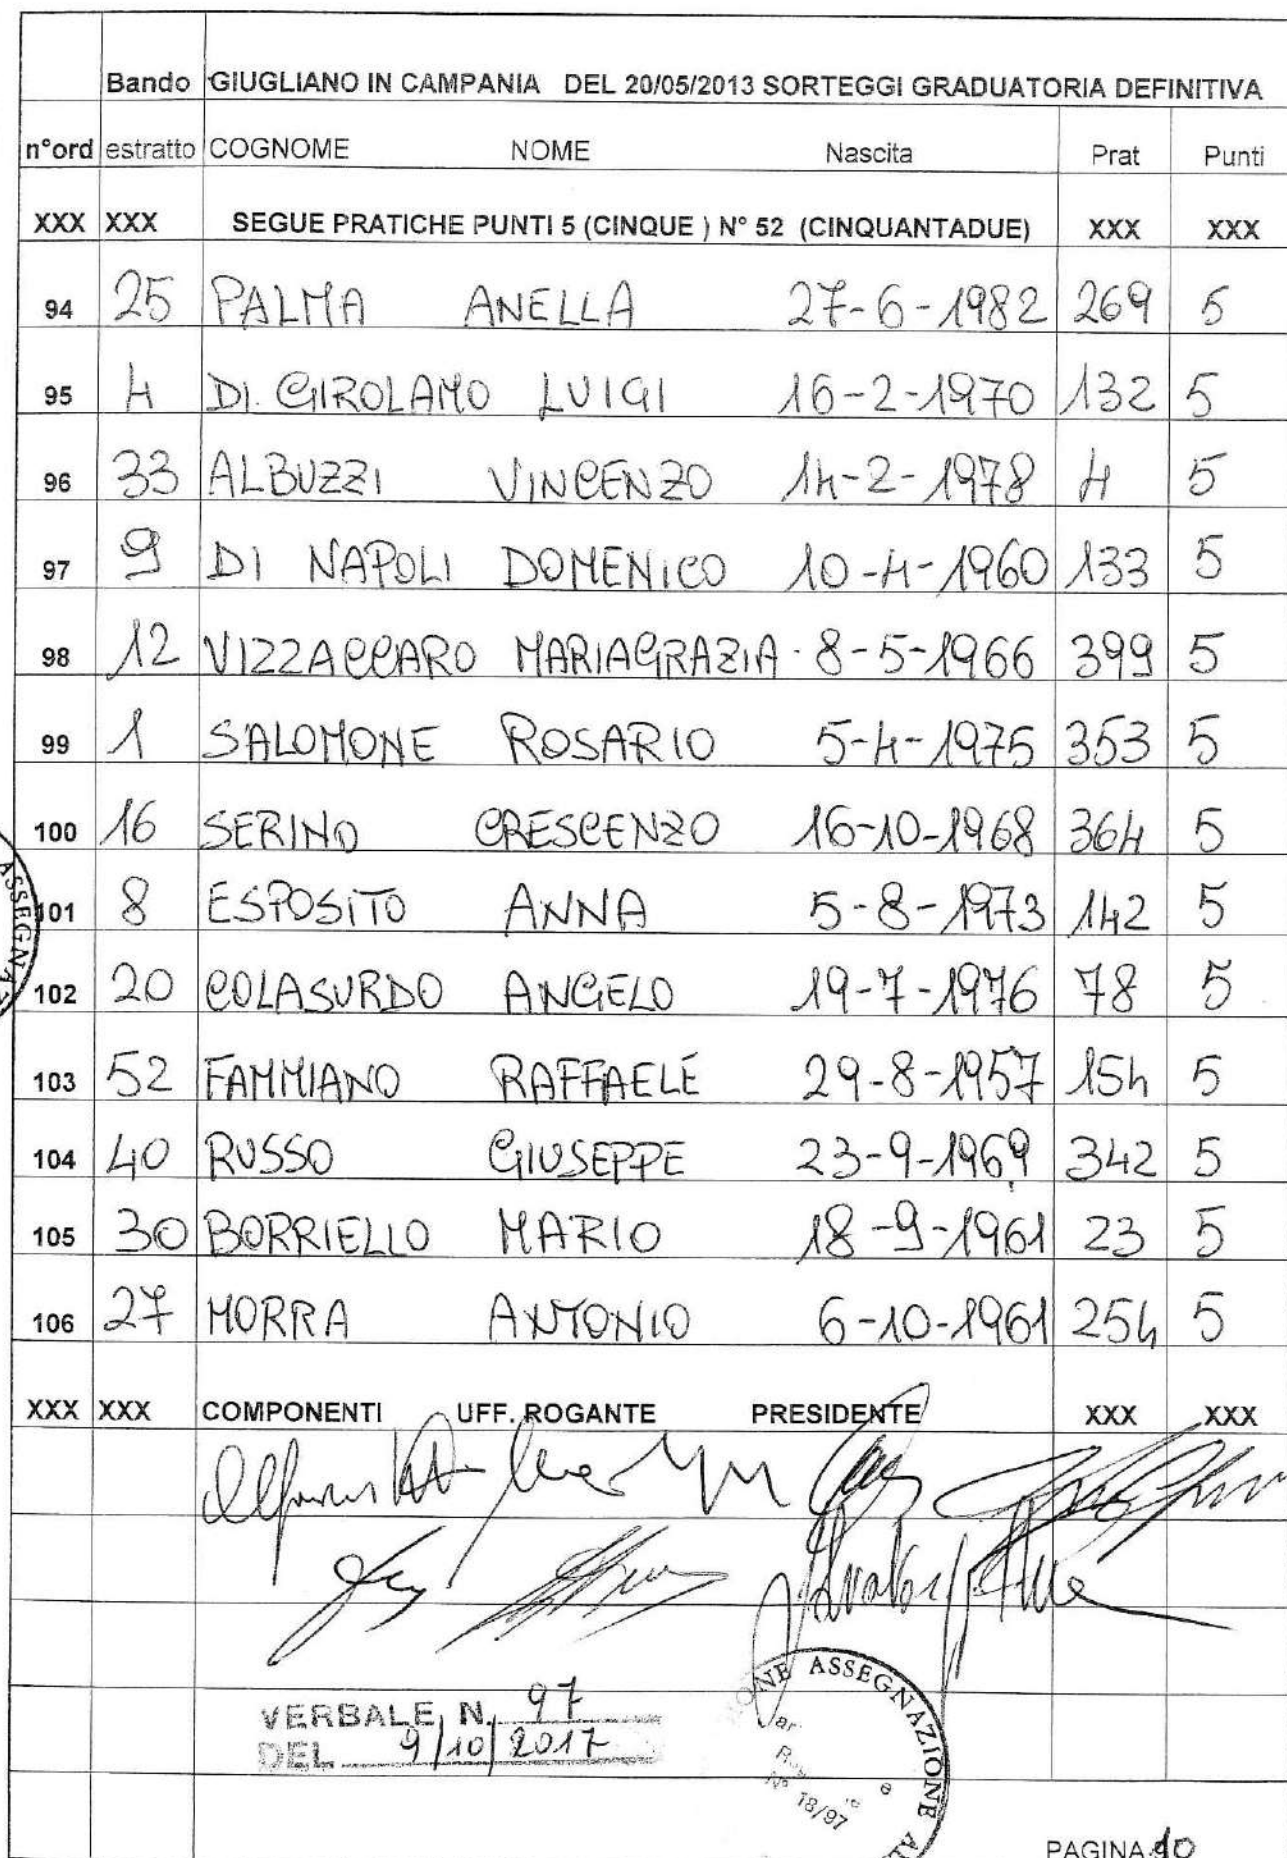 Bando GIUGLIANO IN CAMPANIA DEL 20/05/2013 SORTEGGI GRADUATORIA DEFINITIVA
n°ord estratto COGNOME NOME Nascita Prat Punti
XXX XXX SEGUE PRATICHE PUNTI 5 (CINQUE ) N° 52 (CINQUANTADUE) XXX XXX
94 25 PALMA ANELLA 27-6-1982 269 5
95 4 DI GIROLAMO LUIGI 16-2-1970 132 5
96 33 ALBUZZI VINCENZO 14-2-1978 4 5
97 9 DI NAPOLI DOMENICO 10-4-1960 133 5
98 12 VIZZACCARO MARIAGRAZIA 8-5-1966 399 5
99 1 SALOMONE ROSARIO 5-4-1975 353 5
100 16 SERINO CRESCENZO 16-10-1968 364 5
101 8 ESPOSITO ANNA 5-8-1973 142 5
102 20 COLASURDO ANGELO 19-7-1976 78 5
103 52 FAMMIANO RAFFAELE 29-8-1957 154 5
104 40 RUSSO GIUSEPPE 23-9-1969 342 5
105 30 BORRIELLO MARIO 18-9-1961 23 5
106 27 MORRA ANTONIO 6-10-1961 254 5
XXX XXX COMPONENTI UFF. ROGANTE PRESIDENTE XXX XXX
VERBALE N. 97
DEL 9/10/2017
ASSEGNAZIONE
N° 18/97
PAGINA 10